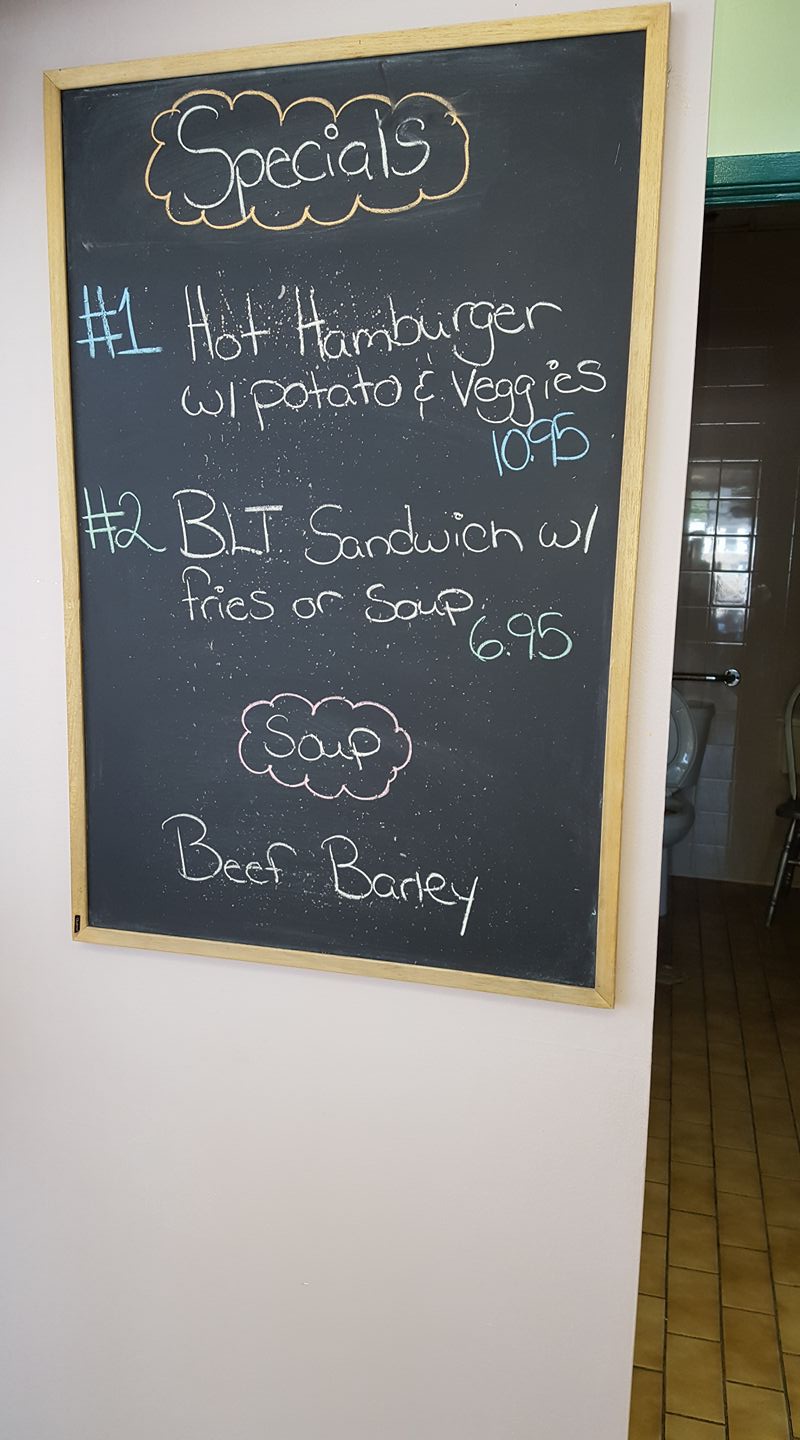 Specials
#1 Hot Hamburger
w/ potato & Veggies
10.95
#2 B.L.T. Sandwich w/
fries or soup.
6.95
Soup
Beef Barley